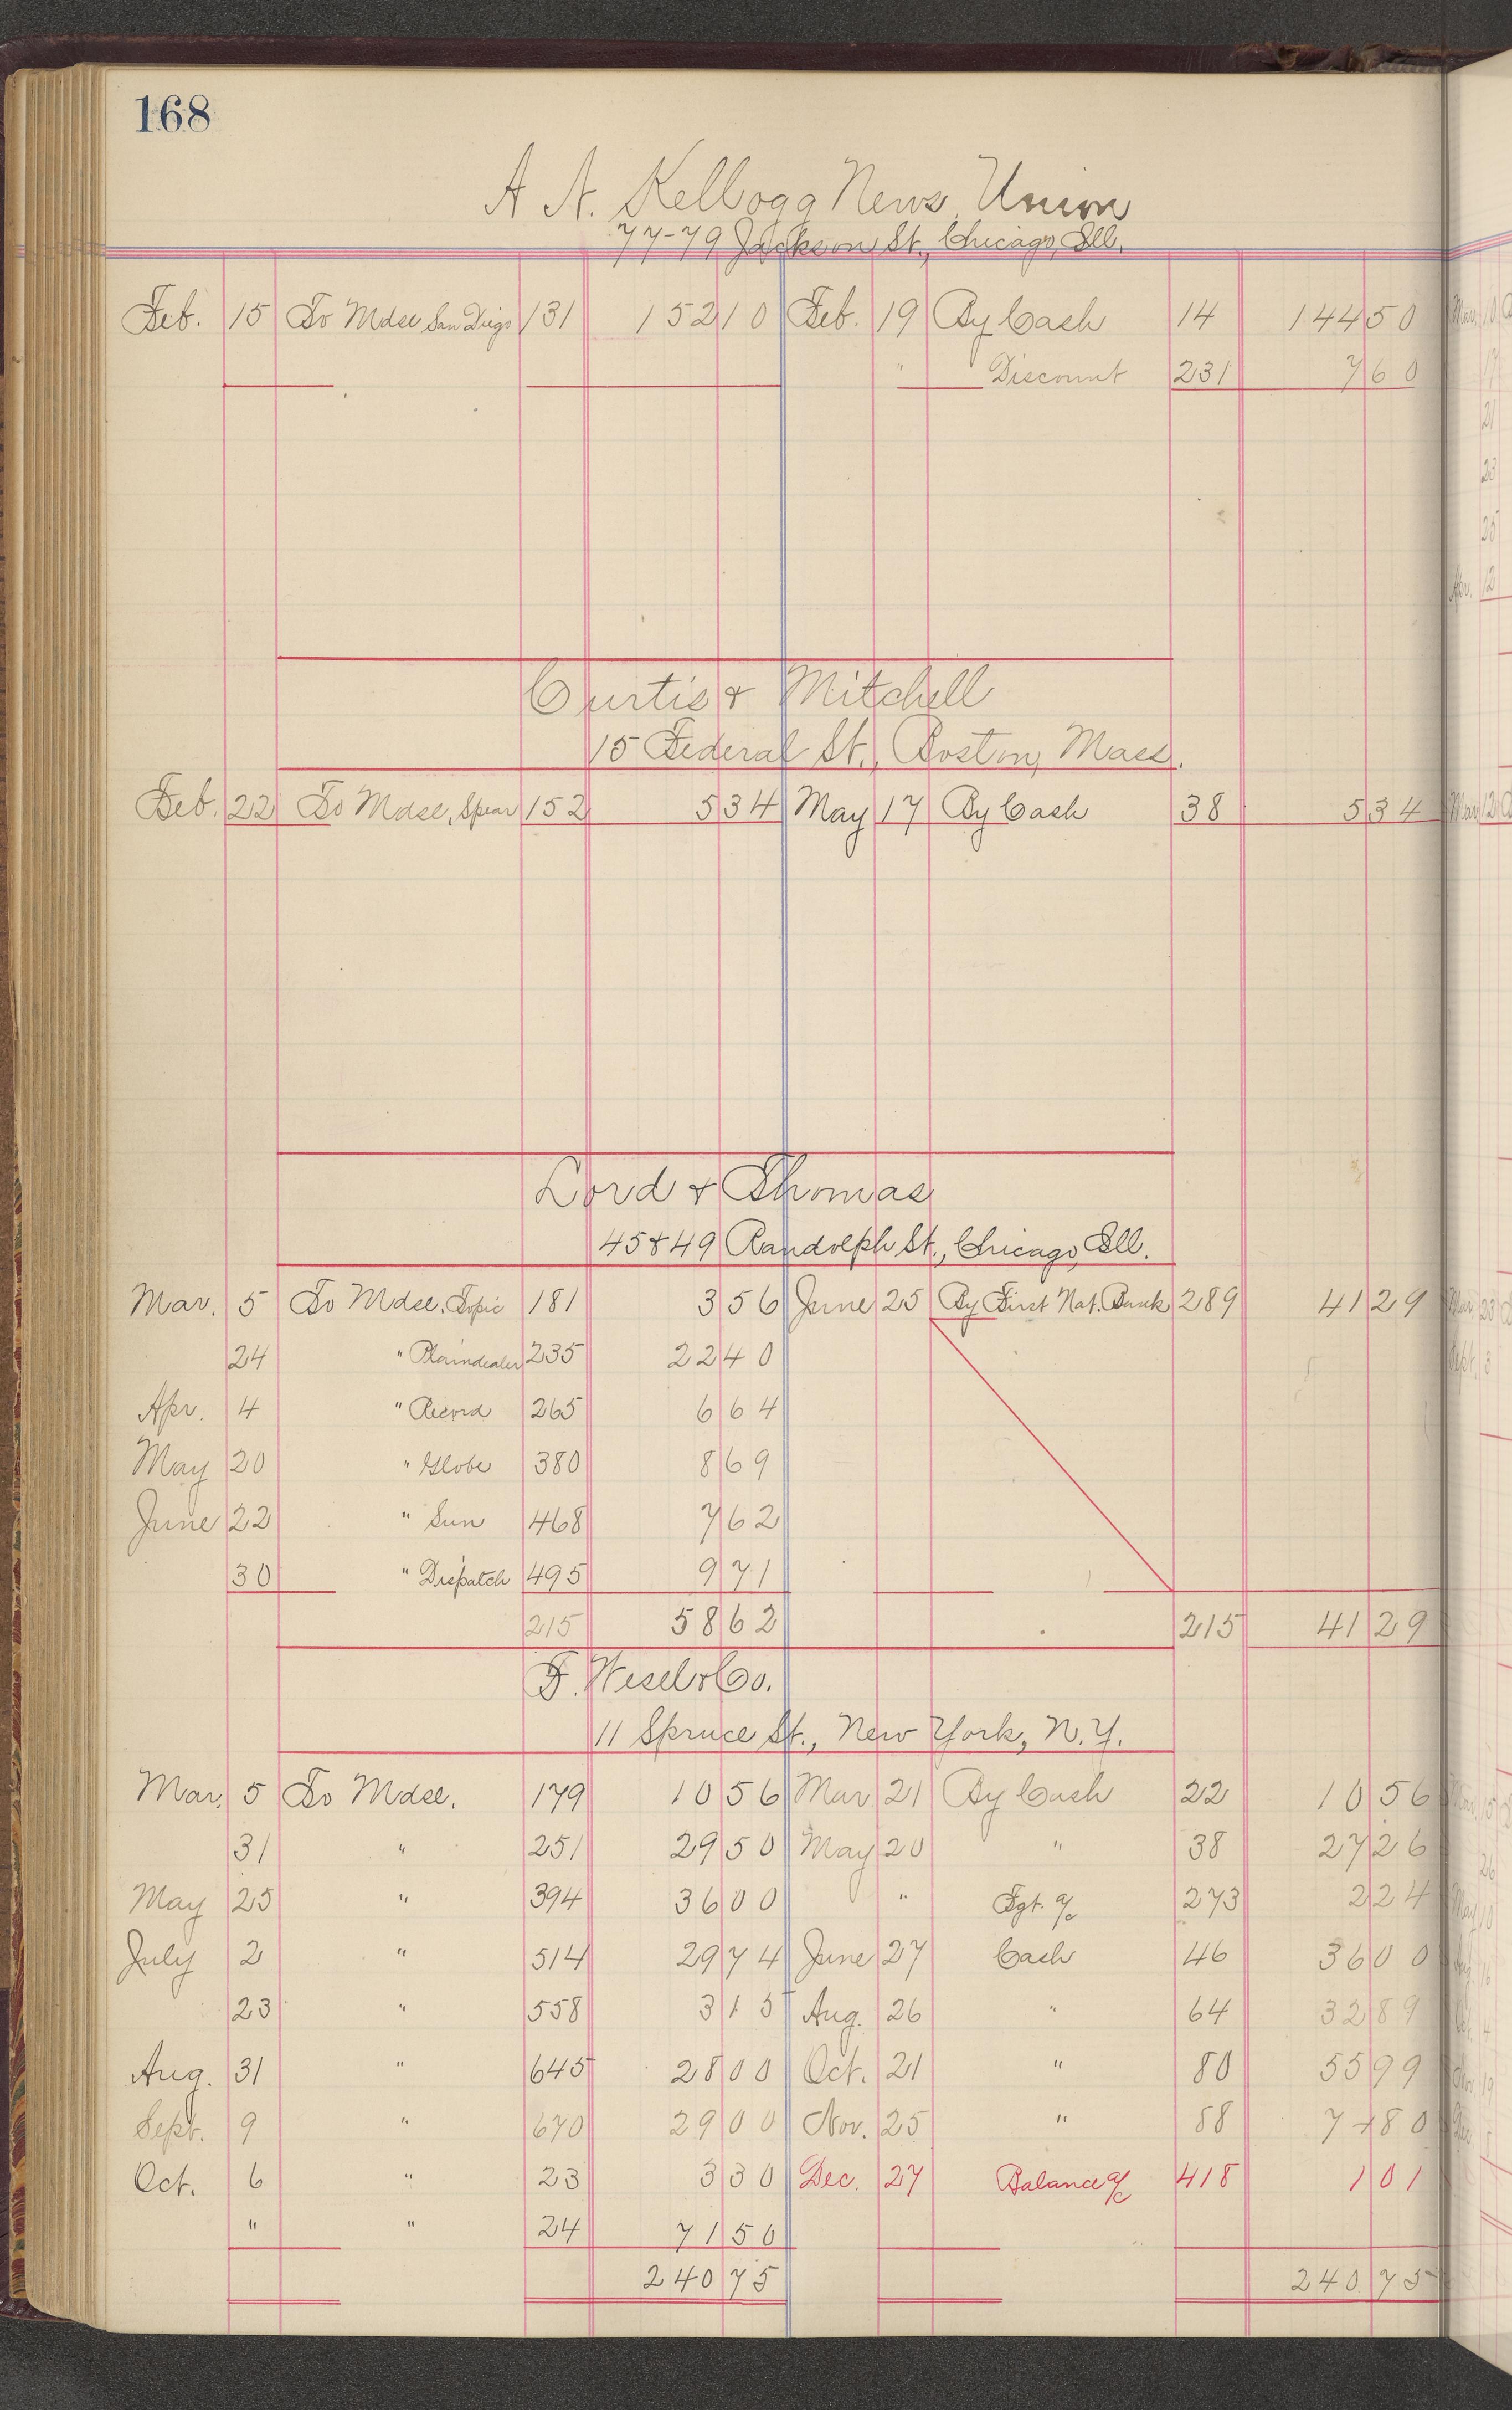 168
A. N. Kellogg News Union
77-79 Jackson St., Chicago, Ill.
Feb. 15 To Mdse San Diego 131 152 10 Feb. 19 By Cash 14 144 50
" Discount 231 7 60
Curtis & Mitchell
15 Federal St., Boston, Mass.
Feb. 22 To Mdse, Spear 152 5 34 May 17 By Cash 38 5 34
Lord & Thomas
45 & 49 Randolph St., Chicago, Ill.
Mar. 5 To Mdse. Topic 181 3 56 June 25 By First Nat. Bank 289 41 29
24 " Plaindealer 235 22 40
Apr. 4 " Record 265 6 64
May 20 " Globe 380 8 69
June 22 " Sun 468 7 62
30 " Dispatch 495 9 71
215 58 62 215 41 29
F. Wesel & Co.
11 Spruce St., New York, N.Y.
Mar. 5 To Mdse. 179 10 56 Mar 21 By Cash 22 10 56
31 " 251 29 50 May 20 " 38 27 26
May 25 " 394 36 00 " Fgt. a/c 273 2 24
July 2 " 514 29 74 June 27 Cash 46 36 00
23 " 558 3 15 Aug. 26 " 64 32 89
Aug. 31 " 645 28 00 Oct. 21 " 80 55 99
Sept. 9 " 670 29 00 Nov. 25 " 88 74 80
Oct. 6 " 23 3 30 Dec. 27 Balance a/c 418 1 01
" " 24 71 50
240 75 240 75